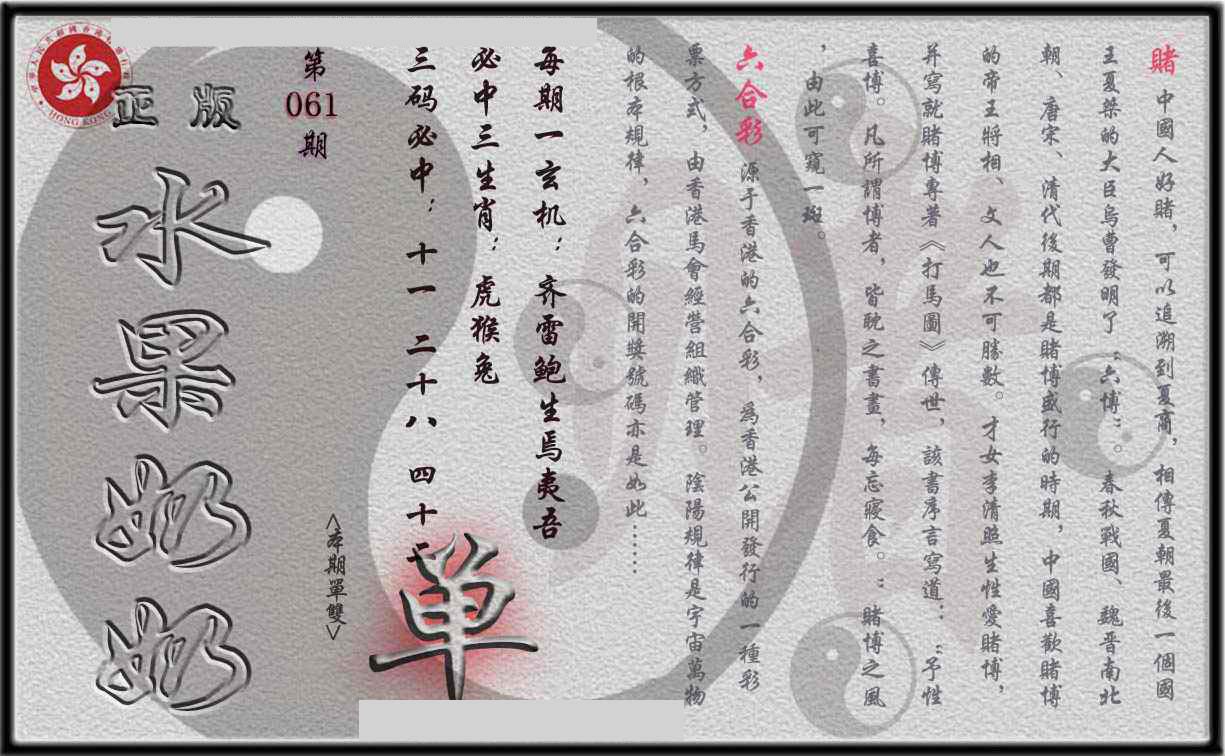 賭 中國人好賭，可以追溯到夏商，相傳夏朝最後一個國
王夏桀的大臣烏曹發明了“六博”。春秋戰國、魏晋南北
朝、唐宋、清代後期都是賭博盛行的時期，中國喜歡賭博
的帝王將相、文人也不可勝數。才女李清照生性愛賭博，
并寫就賭博專著《打馬圖》傳世，該書序言寫道：“予性
喜博。凡所謂博者，皆耽之書晝，每忘寢食。”賭博之風
，由此可窺一斑。
六合彩 源于香港的六合彩，爲香港公開發行的一種彩
票方式，由香港馬會經營組織管理。陰陽規律是宇宙萬物
的根本規律，六合彩的開獎號碼亦是如此……
每期一玄机：齐雷鲍生焉夷吾
必中三生肖：虎猴兔
三码必中：十一 二十八 四十七
單
<本期單雙>
第
061
期
正版
水果奶奶
HONG KONG